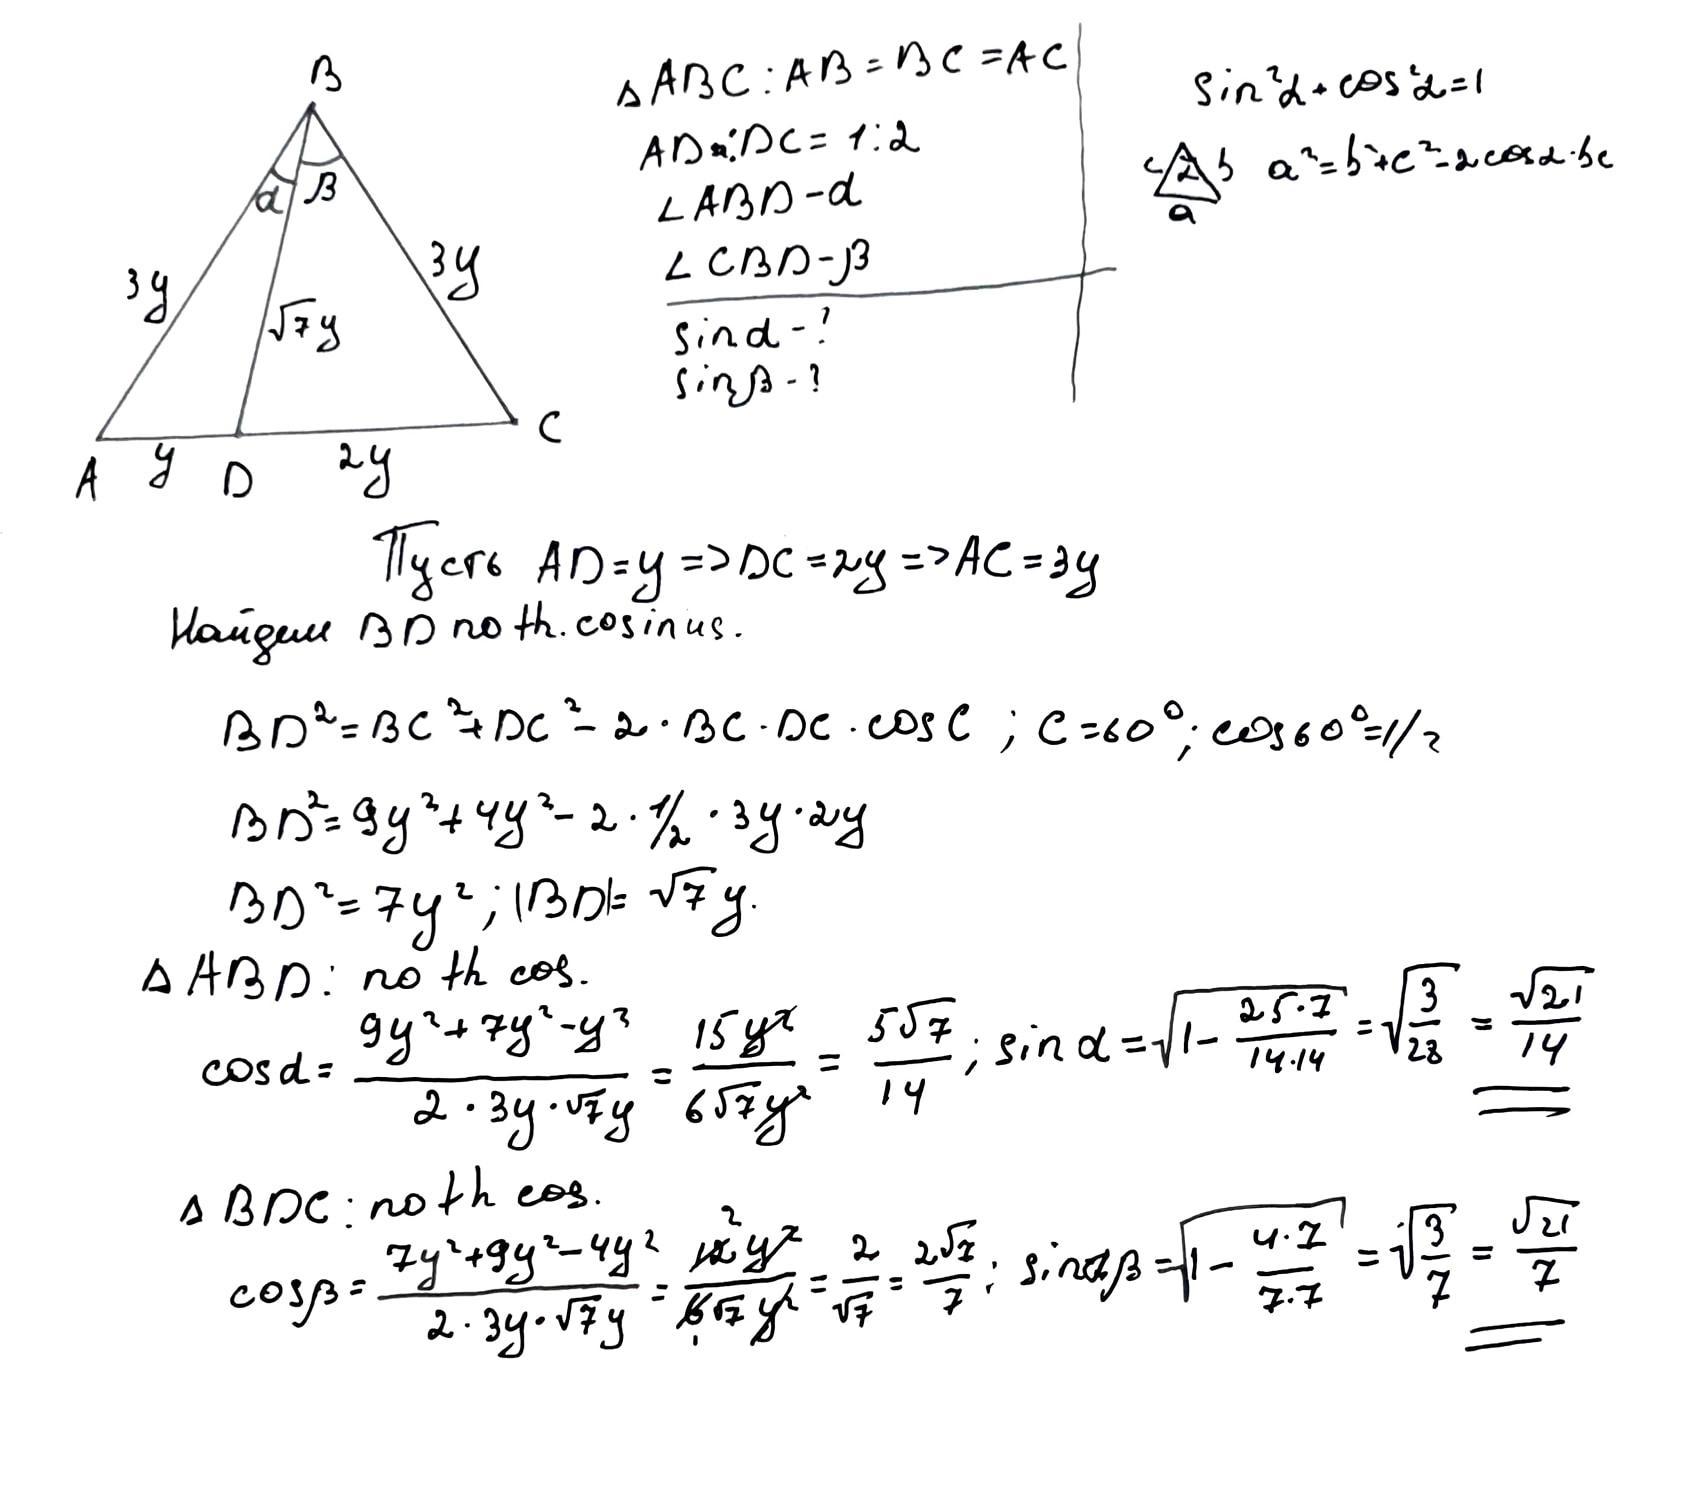 B
α
β
3y
3y
√7y
A
y
D
2y
C
△ABC : AB = BC = AC
AD : DC = 1 : 2
∠ABD - α
∠CBD - β
sin α - ?
sin β - ?
sin²α + cos²α = 1
c α b a² = b² + c² - 2cosα·bc
a
Пусть AD = y => DC = 2y => AC = 3y
Найдем BD по th. cosinus.
BD² = BC² + DC² - 2 · BC · DC · cos C ; C = 60°; cos 60° = 1/2
BD² = 9y² + 4y² - 2 · 1/2 · 3y · 2y
BD² = 7y² ; |BD| = √7 y.
△ABD: по th cos.
cos α = (9y² + 7y² - y²)/(2 · 3y · √7y) = 15y²/(6√7y²) = 5√7/14 ; sin α = √(1 - 25·7/(14·14)) = √(3/28) = √21/14
△BDC: по th cos.
cos β = (7y² + 9y² - 4y²)/(2 · 3y · √7y) = 12y²/(6√7y²) = 2/√7 = 2√7/7 ; sin β = √(1 - 4·7/(7·7)) = √(3/7) = √21/7